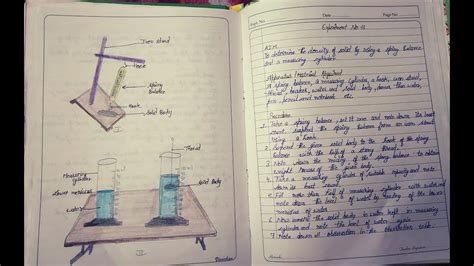 Iron stand
Hook
Spring
Balance
Hook
Solid Body
I
Thread
Measuring
cylinder
Lower meniscus
Water
Solid Body
II
Expt. No.
Date
Page No.
Experiment No-
AIM
To determine the density of solid by using a spring balance
and a measuring cylinder
Apparatus / Material Required
A spring balance, a measuring cylinder, a hook, iron stand,
thread, beaker, water and solid body, denser than water,
pen, pencil and notebook etc.
Procedure
1. Take a spring balance, set it and note down its least
count. Suspend the spring balance from an iron stand
using a hook.
2. Suspend the given solid body to the hook of the spring
balance with the help of a strong thread.
3. Note down the reading of the spring balance to obtain
weight of the solid body
4. Take a measuring cylinder of suitable capacity and note
down its least count.
5. Fill more than half of measuring cylinder with water and
note down the level of water by reading of the lower
meniscus of water
6. Now immerse the solid body in water kept in measuring
cylinder and note the level of water again.
7. Note down all observation in the observation table.